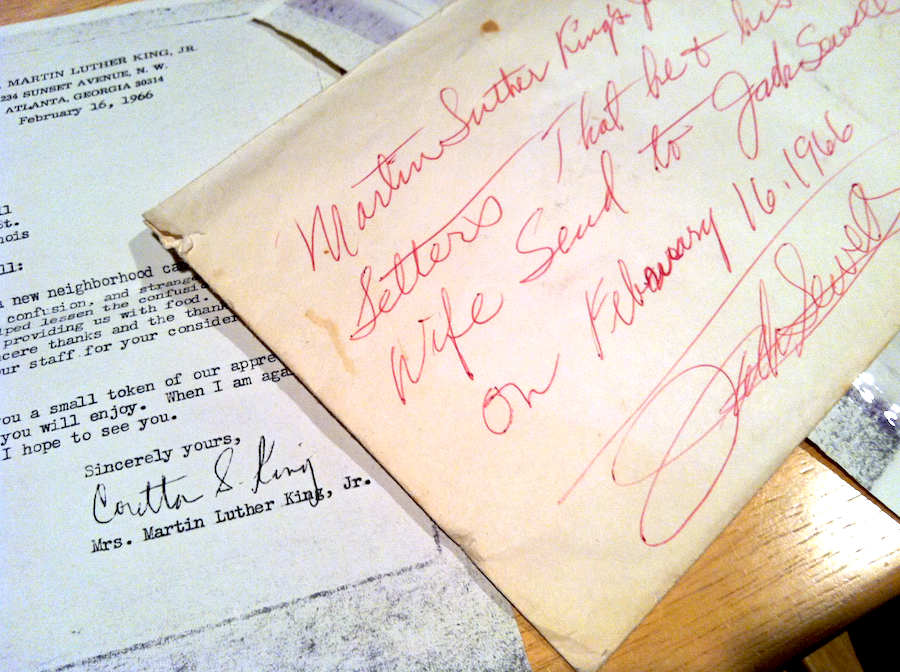 MARTIN LUTHER KING, JR.
234 SUNSET AVENUE, N. W.
ATLANTA, GEORGIA 30314
February 16, 1966
ll
et.
nois
ll:
new neighborhood ca
confusion, and strang
ped lessen the confusi
providing us with food.
cere thanks and the thank
ur staff for your consider
you a small token of our appre
you will enjoy. When I am aga
I hope to see you.
Sincerely yours,
Coretta S. King
Mrs. Martin Luther King, Jr.
Martin Luther King's
Letters That he & his
Wife Send to Jack Sewell
on February 16. 1966
Jack Sewell